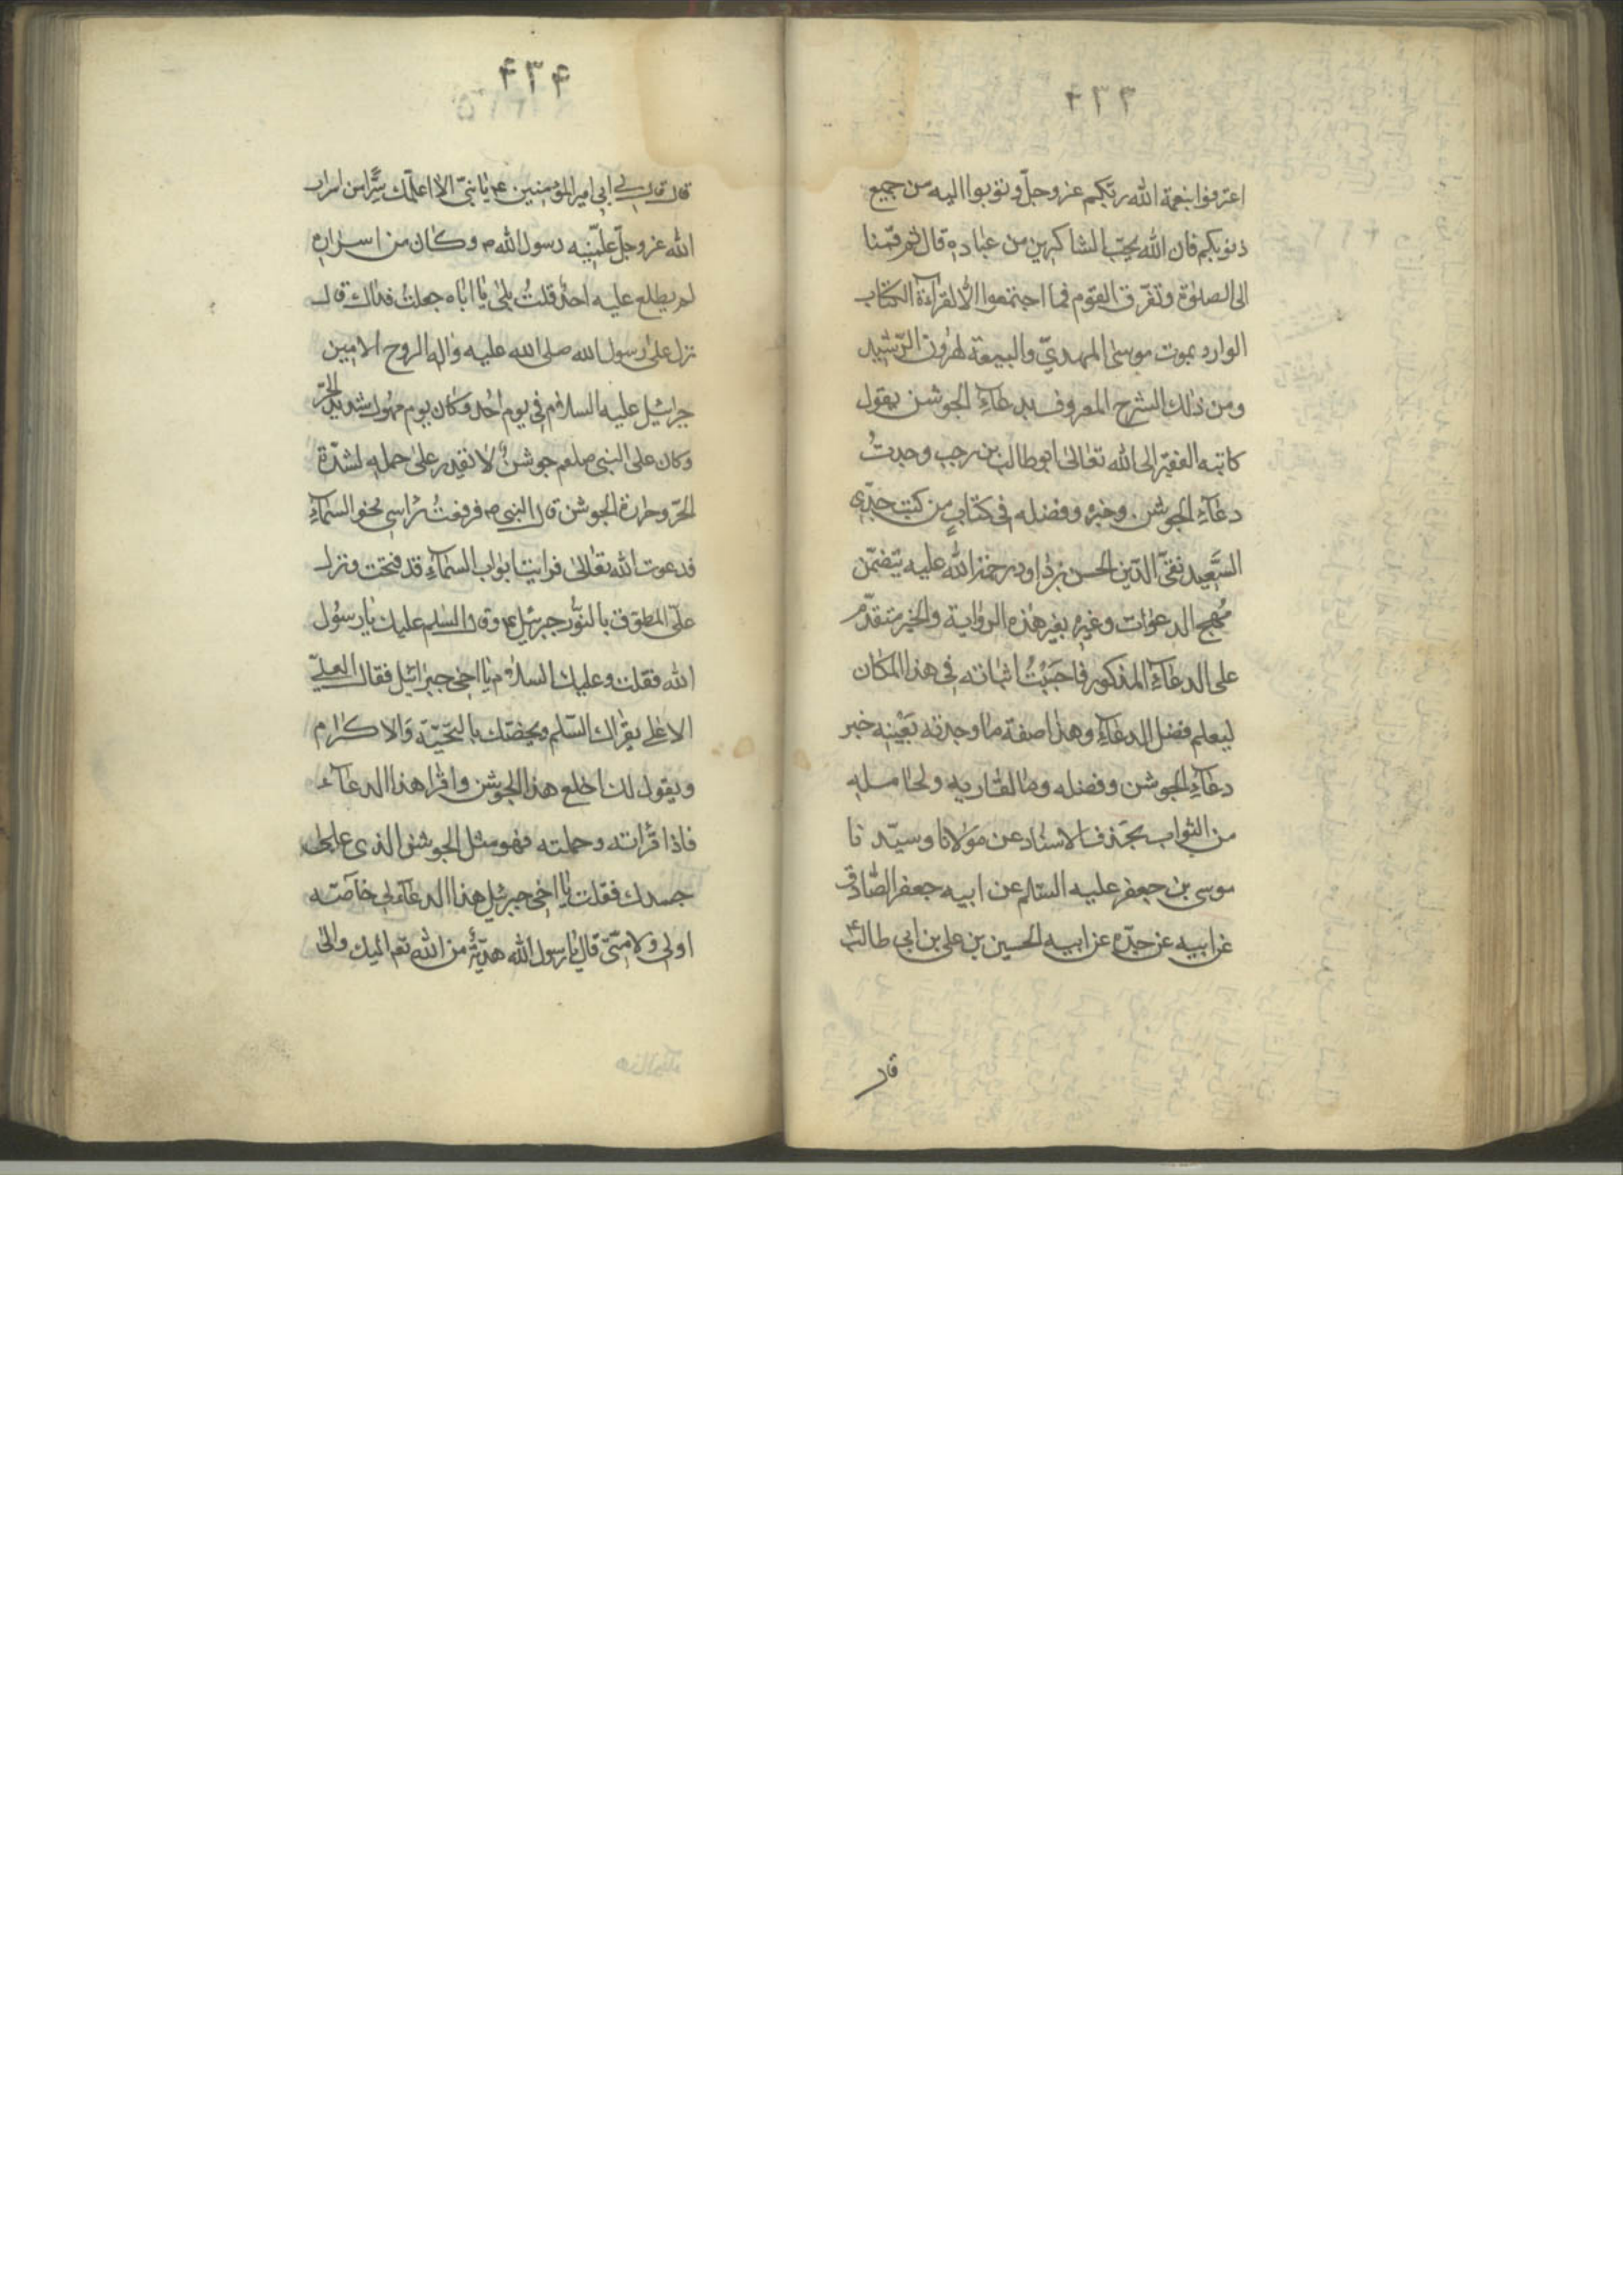 ۴۳۳
اعترفوا بنعمة الله ربكم عز وجل وتوبوا اليه من جميع
ذنوبكم فان الله يحب الشاكرين من عباده قال ثم قمنا
الى الصلوة وتفرق القوم فما اجتمعوا الا لقراءة الكتاب
الوارد بموت موسى المهدي والبيعة لهرون الرشيد
ومن ذلك الشرح المعروف بدعاء الجوشن يقول
كاتبه الفقير الى الله تعالى ابو طالب بن رجب وجدت
دعاء الجوشن وخبره وفضله في كتاب من كتب جدى
السعيد تقى الدين الحسن بن داود رحمة الله عليه يتضمن
مهج الدعوات وغيره بغير هذه الرواية والخبر متقدم
على الدعاء المذكور فاحببت اثباته في هذا المكان
ليعلم فضل الدعاء وهذا صفة ما وجدته بعينه خبر
دعاء الجوشن وفضله وما لقاريه ولحامله
من الثواب بحذف الاسناد عن مولانا وسيدنا
موسى بن جعفر عليه السلم عن ابيه جعفر الصادق
عن ابيه عن جده عن ابيه الحسين بن على بن ابي طالب ع
قال
۴۳۴
قال قال لي ابي امير المؤمنين ع يا بني الا اعلمك سرا من اسرار
الله عز وجل علمنيه رسول الله ص وكان من اسراره
لم يطلع عليه احد قلت بلى يا اباه جعلت فداك قال
نزل على رسول الله صلى الله عليه واله الروح الامين
جبرائيل عليه السلام في يوم احد وكان يوم مهول شديد الحر
وكان على النبي صلعم جوشن لا يقدر على حمله لشدة
الحر وحرارة الجوشن قال النبي ص فرفعت راسي نحو السماء
فدعوت الله تعالى فرايت ابواب السماء قد فتحت ونزل
علي المطوق بالنور جبرئيل ع وقال السلم عليك يا رسول
الله فقلت وعليك السلام يا اخي جبرائيل فقال العلي
الاعلى يقراك السلم ويخصك بالتحية والاكرام
ويقول لك اخلع هذا الجوشن واقرا هذا الدعاء
فاذا قراته وحملته فهو مثل الجوشن الذى على
جسدك فقلت يا اخي جبرئيل هذا الدعاء لي خاصته
اولي ولامتى قال يا رسول الله هدية من الله تعم اليك والى